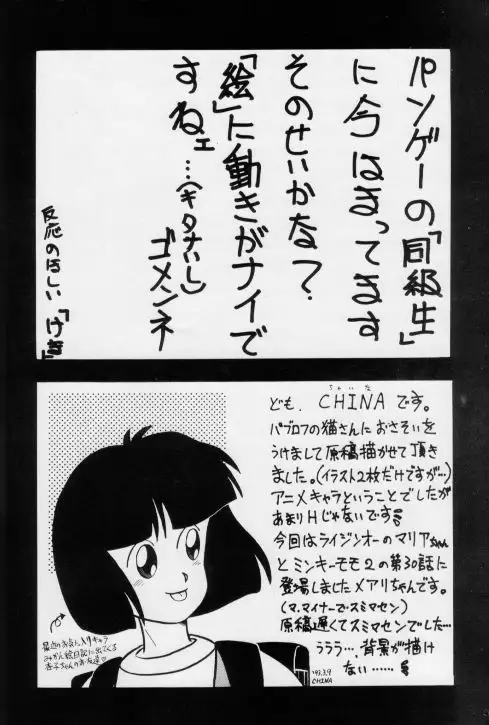 パソゲーの「同級生」
に今はまってます
そのせいかな？
「絵」に動きがナイで
すねェ…(キタナいし)
ゴメンネ
反応のほしい「げき」
ども、CHINAです。
ちゃいな
パブロフの猫さんにおさそいを
うけまして原稿描かせて頂き
ました。(イラスト2枚だけですが…)
アニメキャラということでしたが
あまりHじゃないです
今回はライジンオーのマリアちゃん
とミンキーモモ2の第30話に
登場しましたメアリちゃんです。
(マ、マイナーでスミマセン)
原稿遅くてスミマセンでした…
ううう…、背景が描け
ない……
'93.3.9
CHINA
最近のお気に入りキャラ
みかん絵日記に出てくる
杏子ちゃんのお友達♡